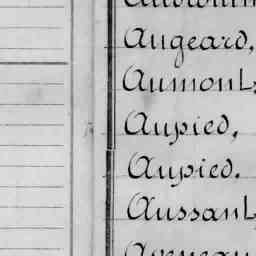 Augeard,
Aumont,
Aupied,
Aupied.
Aussant,